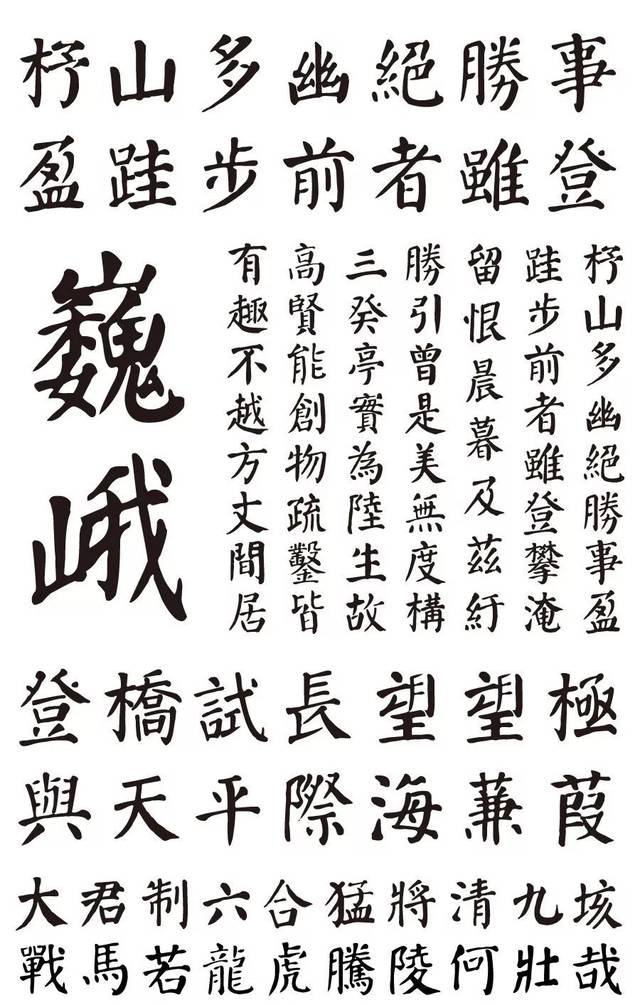 杼山多幽絕勝事
盈跬步前者雖登
杼山多幽絕勝事盈
跬步前者雖登攀淹
留恨晨暮及茲紆
勝引曾是美無度構
三癸亭實為陸生故
高賢能創物疏鑿皆
有趣不越方丈間居
巍峨
登橋試長望望極
與天平際海蒹葭
大君制六合猛將清九垓
戰馬若龍虎騰陵何壯哉